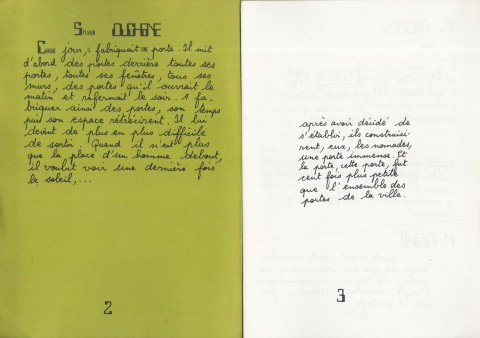 Chaque jour, il fabriquait une porte. Il mit
d'abord des portes derrière toutes ses
portes, toutes ses fenêtres, tous ses
murs, des portes qu'il ouvrait le
matin et refermait le soir. A fa-
briquer ainsi des portes, son temps
puis son espace rétrécirent. Il lui
devint de plus en plus difficile
de sortir. Quand il n'eut plus
que la place d'un homme debout,
il voulut voir une dernière fois
le soleil,...
2
après avoir décidé de
s'établir, ils construisi-
rent, eux, les nomades,
une porte immense. Et
la porte, cette porte, fut
cent fois plus petite
que l'ensemble des
portes de la ville.
3